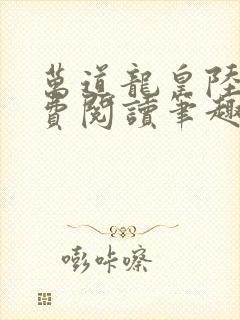 萬道龍皇陸
費閱讀筆趣
嘭咔嚓